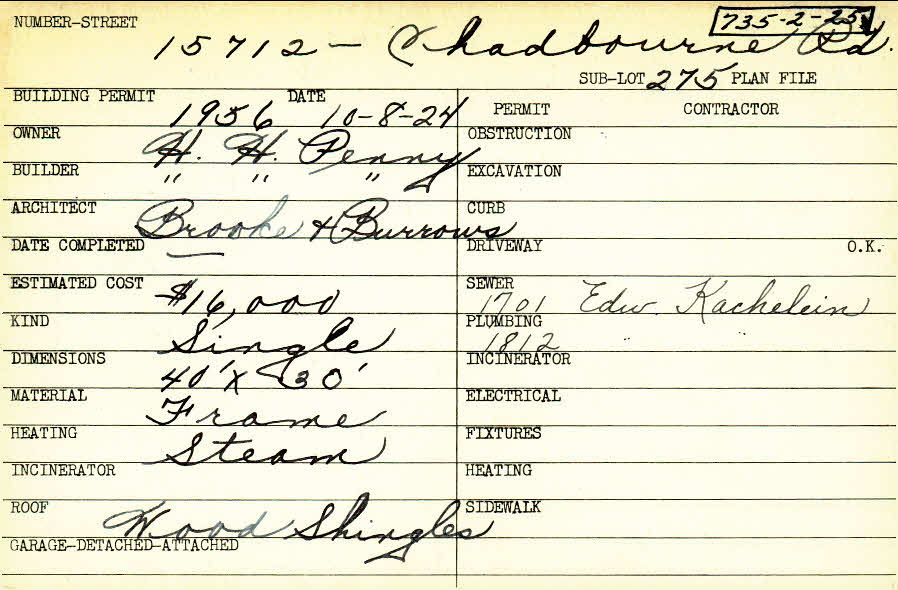 NUMBER-STREET 735-2-25
15712 - Chadbourne Rd.
SUB-LOT 275 PLAN FILE
BUILDING PERMIT 1956 DATE 10-8-24 PERMIT CONTRACTOR
OWNER H. H. Penny OBSTRUCTION
BUILDER " " " EXCAVATION
ARCHITECT Brooke & Burrows CURB
DATE COMPLETED — DRIVEWAY O.K.
ESTIMATED COST $16,000 SEWER 1701 Edw. Kachelein
KIND Single PLUMBING 1812
DIMENSIONS 40' x 30' INCINERATOR
MATERIAL Frame ELECTRICAL
HEATING Steam FIXTURES
INCINERATOR HEATING
ROOF Wood Shingles SIDEWALK
GARAGE-DETACHED-ATTACHED